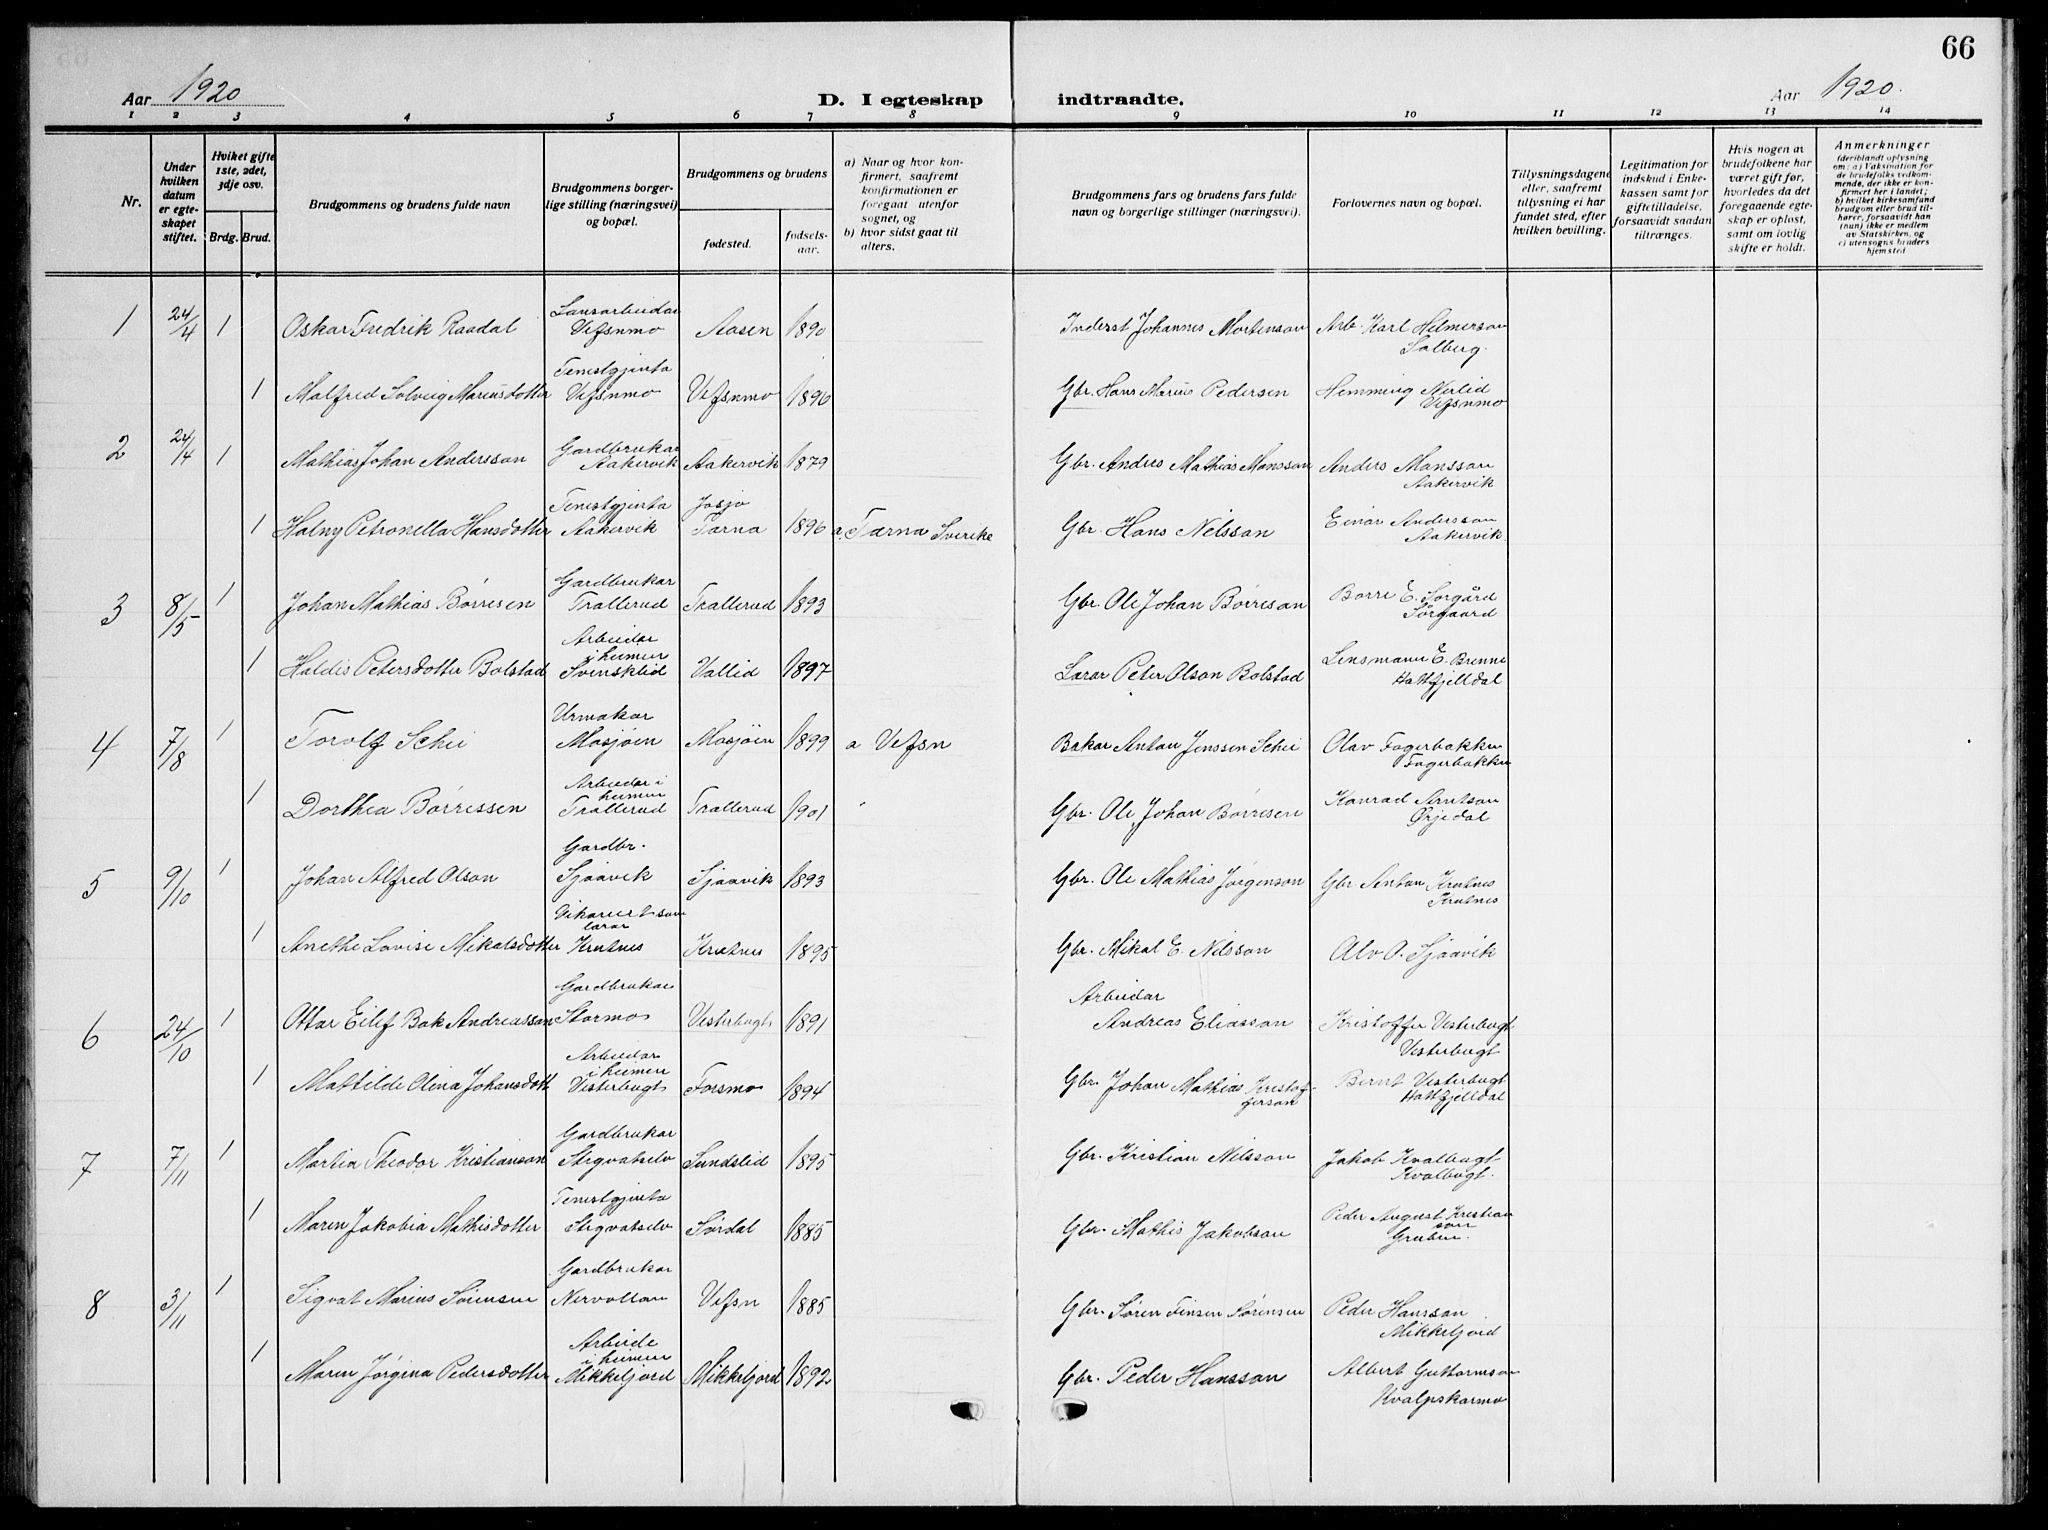 66
Aar 1920
D. I egteskap
indtraadte.
Aar 1920.
1 2 3 4 5 6 7 8 9 10 11 12 13 14
Nr.
Under hvilken datum er egteskapet stiftet.
Hvilket gifte 1ste, 2det, 3dje osv.
Brdg. Brud.
Brudgommens og brudens fulde navn
Brudgommens borgerlige stilling (næringsvei) og bopæl.
Brudgommens og brudens
fødested.
fødselsaar.
a) Naar og hvor konfirmert, saafremt konfirmationen er foregaat utenfor sognet, og
b) hvor sidst gaat til alters.
Brudgommens fars og brudens fars fulde navn og borgerlige stillinger (næringsvei).
Forlovernes navn og bopæl.
Tillysningsdagene eller, saafremt tillysning ei har fundet sted, efter hvilken bevilling.
Legitimation for indskud i Enkekassen samt for giftetilladelse, forsaavidt saadan tiltrænges.
Hvis nogen av brudefolkene har været gift før, hvorledes da det foregaaende egteskap er opløst, samt om lovlig skifte er holdt.
Anmerkninger
(deriblandt oplysning om: a) Vaksination for de brudefolks vedkommende, der ikke er konfirmert her i landet; b) hvilket kirkesamfund brudgom eller brud tilhører, forsaavidt han (hun) ikke er medlem av Statskirken, og c) utensogns bruders hjemsted
1 24/4 1 Oskar Fredrik Raadal Vefsnmo Aasen 1890 Inderst Johannes Mortenson Arb. Karl Helmerson
Solberg.
Tenestgjenta
1 Malfred Solveig Mariusdotter Vefsnmo Vefsnmo 1896 Gbr. Hans Marius Pedersen Hemming Nerlid
Vefsnmo
2 24/4 1 Mathias Johan Andersson Gardbrukar Aakervik Aakervik 1879 Gbr. Andres Mathias Monsson Anders Monsson
Aakervik
Tenestgjenta Josjo
1 Halny Petronella Hansdotter Aakervik Tarna 1896 a. Tarna Sverike Gbr. Hans Nilsson Einar Andersson
Aakervik
Gardbrukar
3 8/5 1 Johan Mathias Børresen Trallerud Trallerud 1893 Gbr. Ole Johan Børreson Børre E. Sørgård
Sørgaard
Arbeidar i heimen
1 Haldis Petersdotter Bolstad Svensklid Vallid 1897 Lærar Peter Olson Bolstad Lensmann E. Brenne
Hattfjelldal
Urmakar
4 7/8 1 Torolf Schei Mosjøen Mosjøen 1899 a Vefsn Bakar Anton Jenssen Schei Olav Fagerbakke
Fagerbakke
Arbeidar i heimen
1 Dorthea Børressen Trallerud Trallerud 1901 " Gbr. Ole Johan Børresen Konrad Arntson
Ørjedal
Gardbr.
5 9/10 1 Johan Alfred Olson Sjaavik Sjaavik 1893 Gbr. Ole Mathias Jørgenson Gbr. Anton Krutnes
Krutnes
Vikariert som lærar
1 Anethe Lovise Mikalsdotter Krutnes Krutnes 1895 Gbr. Mikal E. Nilsson Alv O. Sjaavik
Gardbrukar Arbeidar
6 24/10 1 Ottar Eilef Bak Andreasson Stormo Vesterbugt 1891 Andreas Eliasson Kristoffer Vesterbugt
Vesterbugt
Arbeidar i heimen
1 Mathilde Olina Johansdott Vesterbugt Forsmo 1894 Gbr. Johan Mathias Kristofferson Bernt Vesterbugt
Hattfjelldal
Gardbrukar
7 7/11 1 Martin Theodor Kristianson Stigvatselv Sundslid 1895 Gbr. Kristian Nilsson Jakob Kvalbugt
Kvalbugt.
Tenestgjenta
1 Maren Jakobia Mathisdotter Stigvatselv Sørdal 1885 Gbr. Mathis Jakobson Peder August Kristianson
Gruben.
Gardbrukar
8 3/11 1 Sigvat Marius Sørensen Nervollan Vefsn 1885 Gbr. Søren Finsen Sørensen Peder Hansson
Mikkeljord
Arbeide i heimen
1 Maren Jørgina Pedersdotter Mikkeljord Mikkeljord 1892 Gbr. Peder Hansson Albert Guttormson
Kvalpskarmo